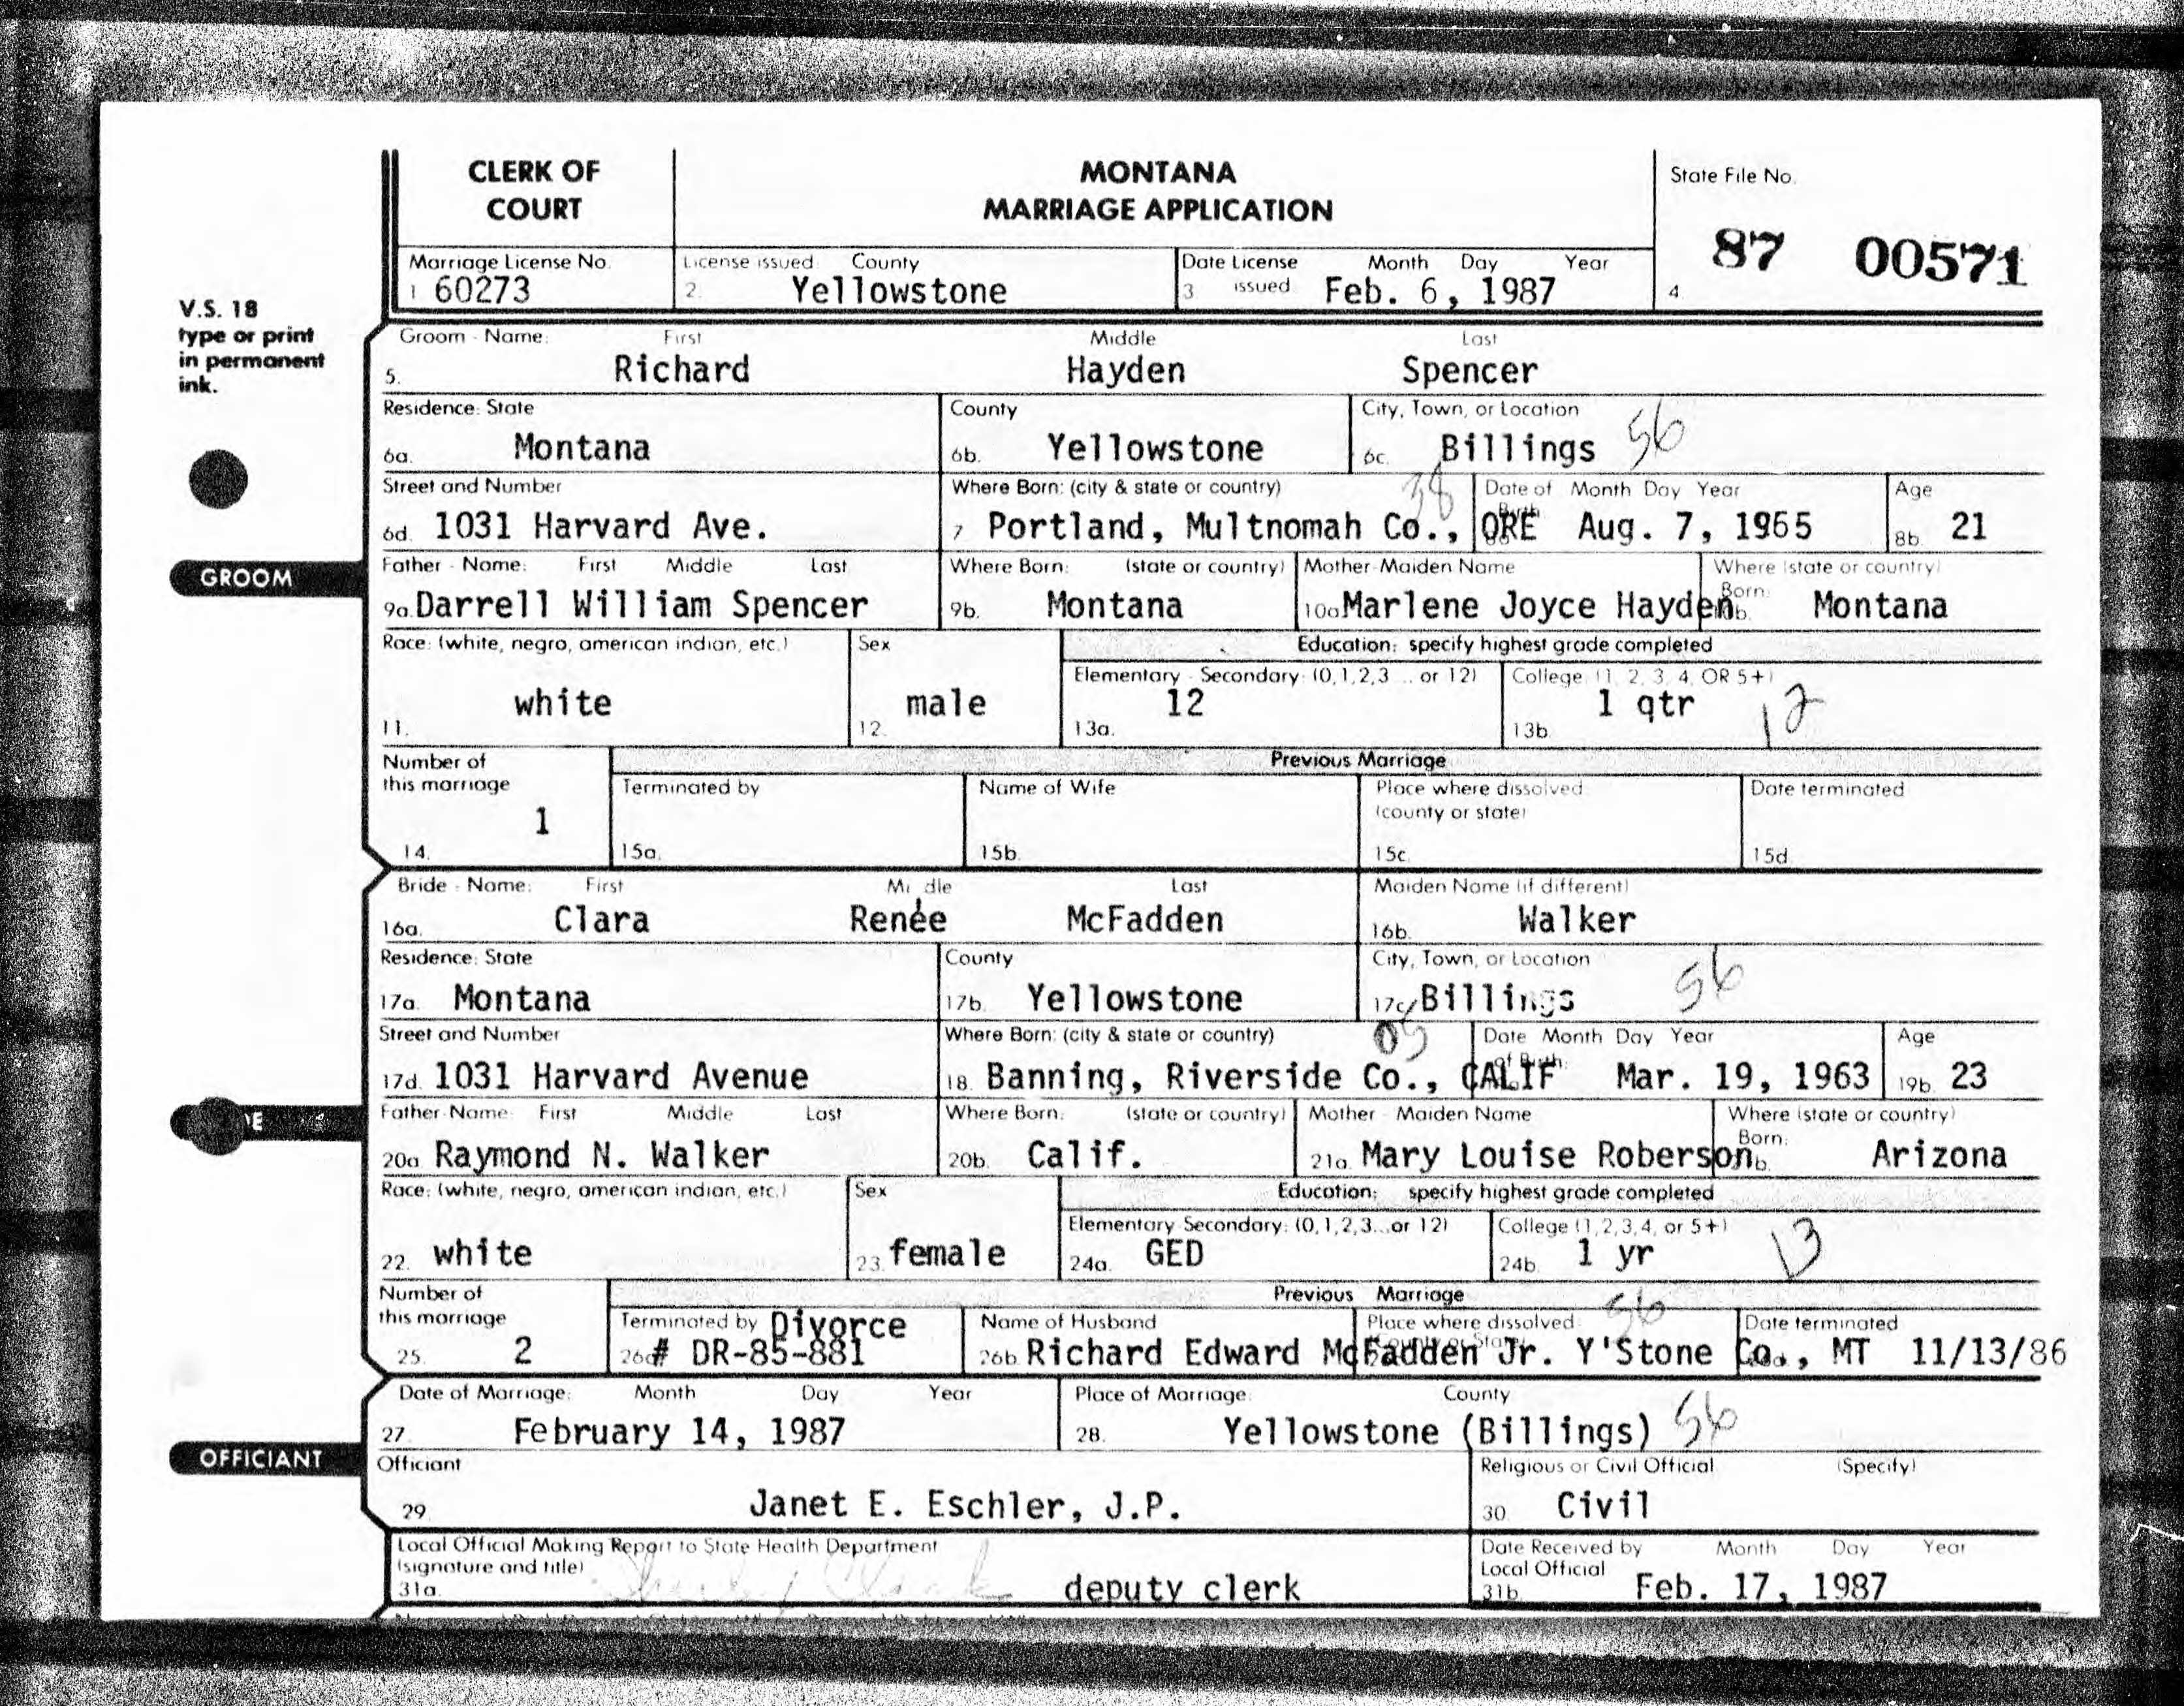 CLERK OF COURT
MONTANA
MARRIAGE APPLICATION
State File No.
4 87 00571
Marriage License No.
1 60273
License issued County
2. Yellowstone
Date License issued Month Day Year
3 Feb. 6, 1987
V.S. 18
type or print
in permanent
ink.
GROOM
Groom - Name: First Middle Last
5. Richard Hayden Spencer
Residence: State County City, Town, or Location
6a. Montana 6b. Yellowstone 6c. Billings 56
Street and Number Where Born: (city & state or country) 38 Date of Birth Month Day Year Age
6d. 1031 Harvard Ave. 7 Portland, Multnomah Co., ORE Aug. 7, 1965 8b. 21
Father - Name: First Middle Last Where Born: (state or country) Mother-Maiden Name Where Born: (state or country)
9a. Darrell William Spencer 9b. Montana 10a Marlene Joyce Hayden b. Montana
Race: (white, negro, american indian, etc.) Sex Education: specify highest grade completed
Elementary - Secondary: (0,1,2,3 .. or 12) College (1, 2, 3, 4, OR 5+)
11. white 12. male 13a. 12 13b. 1 qtr 12
Number of this marriage Previous Marriage
Terminated by Name of Wife Place where dissolved (county or state) Date terminated
14. 1 15a. 15b. 15c. 15d.
Bride - Name: First Middle Last Maiden Name (if different)
16a. Clara Renée McFadden 16b. Walker
Residence: State County City, Town, or Location
17a. Montana 17b. Yellowstone 17c. Billings 56
Street and Number Where Born: (city & state or country) 05 Date of Birth Month Day Year Age
17d. 1031 Harvard Avenue 18. Banning, Riverside Co., CALIF Mar. 19, 1963 19b. 23
Father-Name: First Middle Last Where Born: (state or country) Mother - Maiden Name Where Born: (state or country)
20a Raymond N. Walker 20b. Calif. 21a. Mary Louise Roberson b. Arizona
Race: (white, negro, american indian, etc.) Sex Education: specify highest grade completed
Elementary-Secondary: (0,1,2,3...or 12) College (1,2,3,4, or 5+)
22. white 23. female 24a. GED 24b. 1 yr 13
Number of this marriage Previous Marriage 56
Terminated by Name of Husband Place where dissolved (County or State) Date terminated
25. 2 26a Divorce # DR-85-881 26b. Richard Edward McFadden Jr. Y'Stone Co., MT 11/13/86
Date of Marriage: Month Day Year Place of Marriage: County
27. February 14, 1987 28. Yellowstone (Billings) 56
OFFICIANT
Officiant Religious or Civil Official (Specify)
29. Janet E. Eschler, J.P. 30. Civil
Local Official Making Report to State Health Department
(signature and title)
31a. deputy clerk
Date Received by Local Official Month Day Year
31b. Feb. 17, 1987